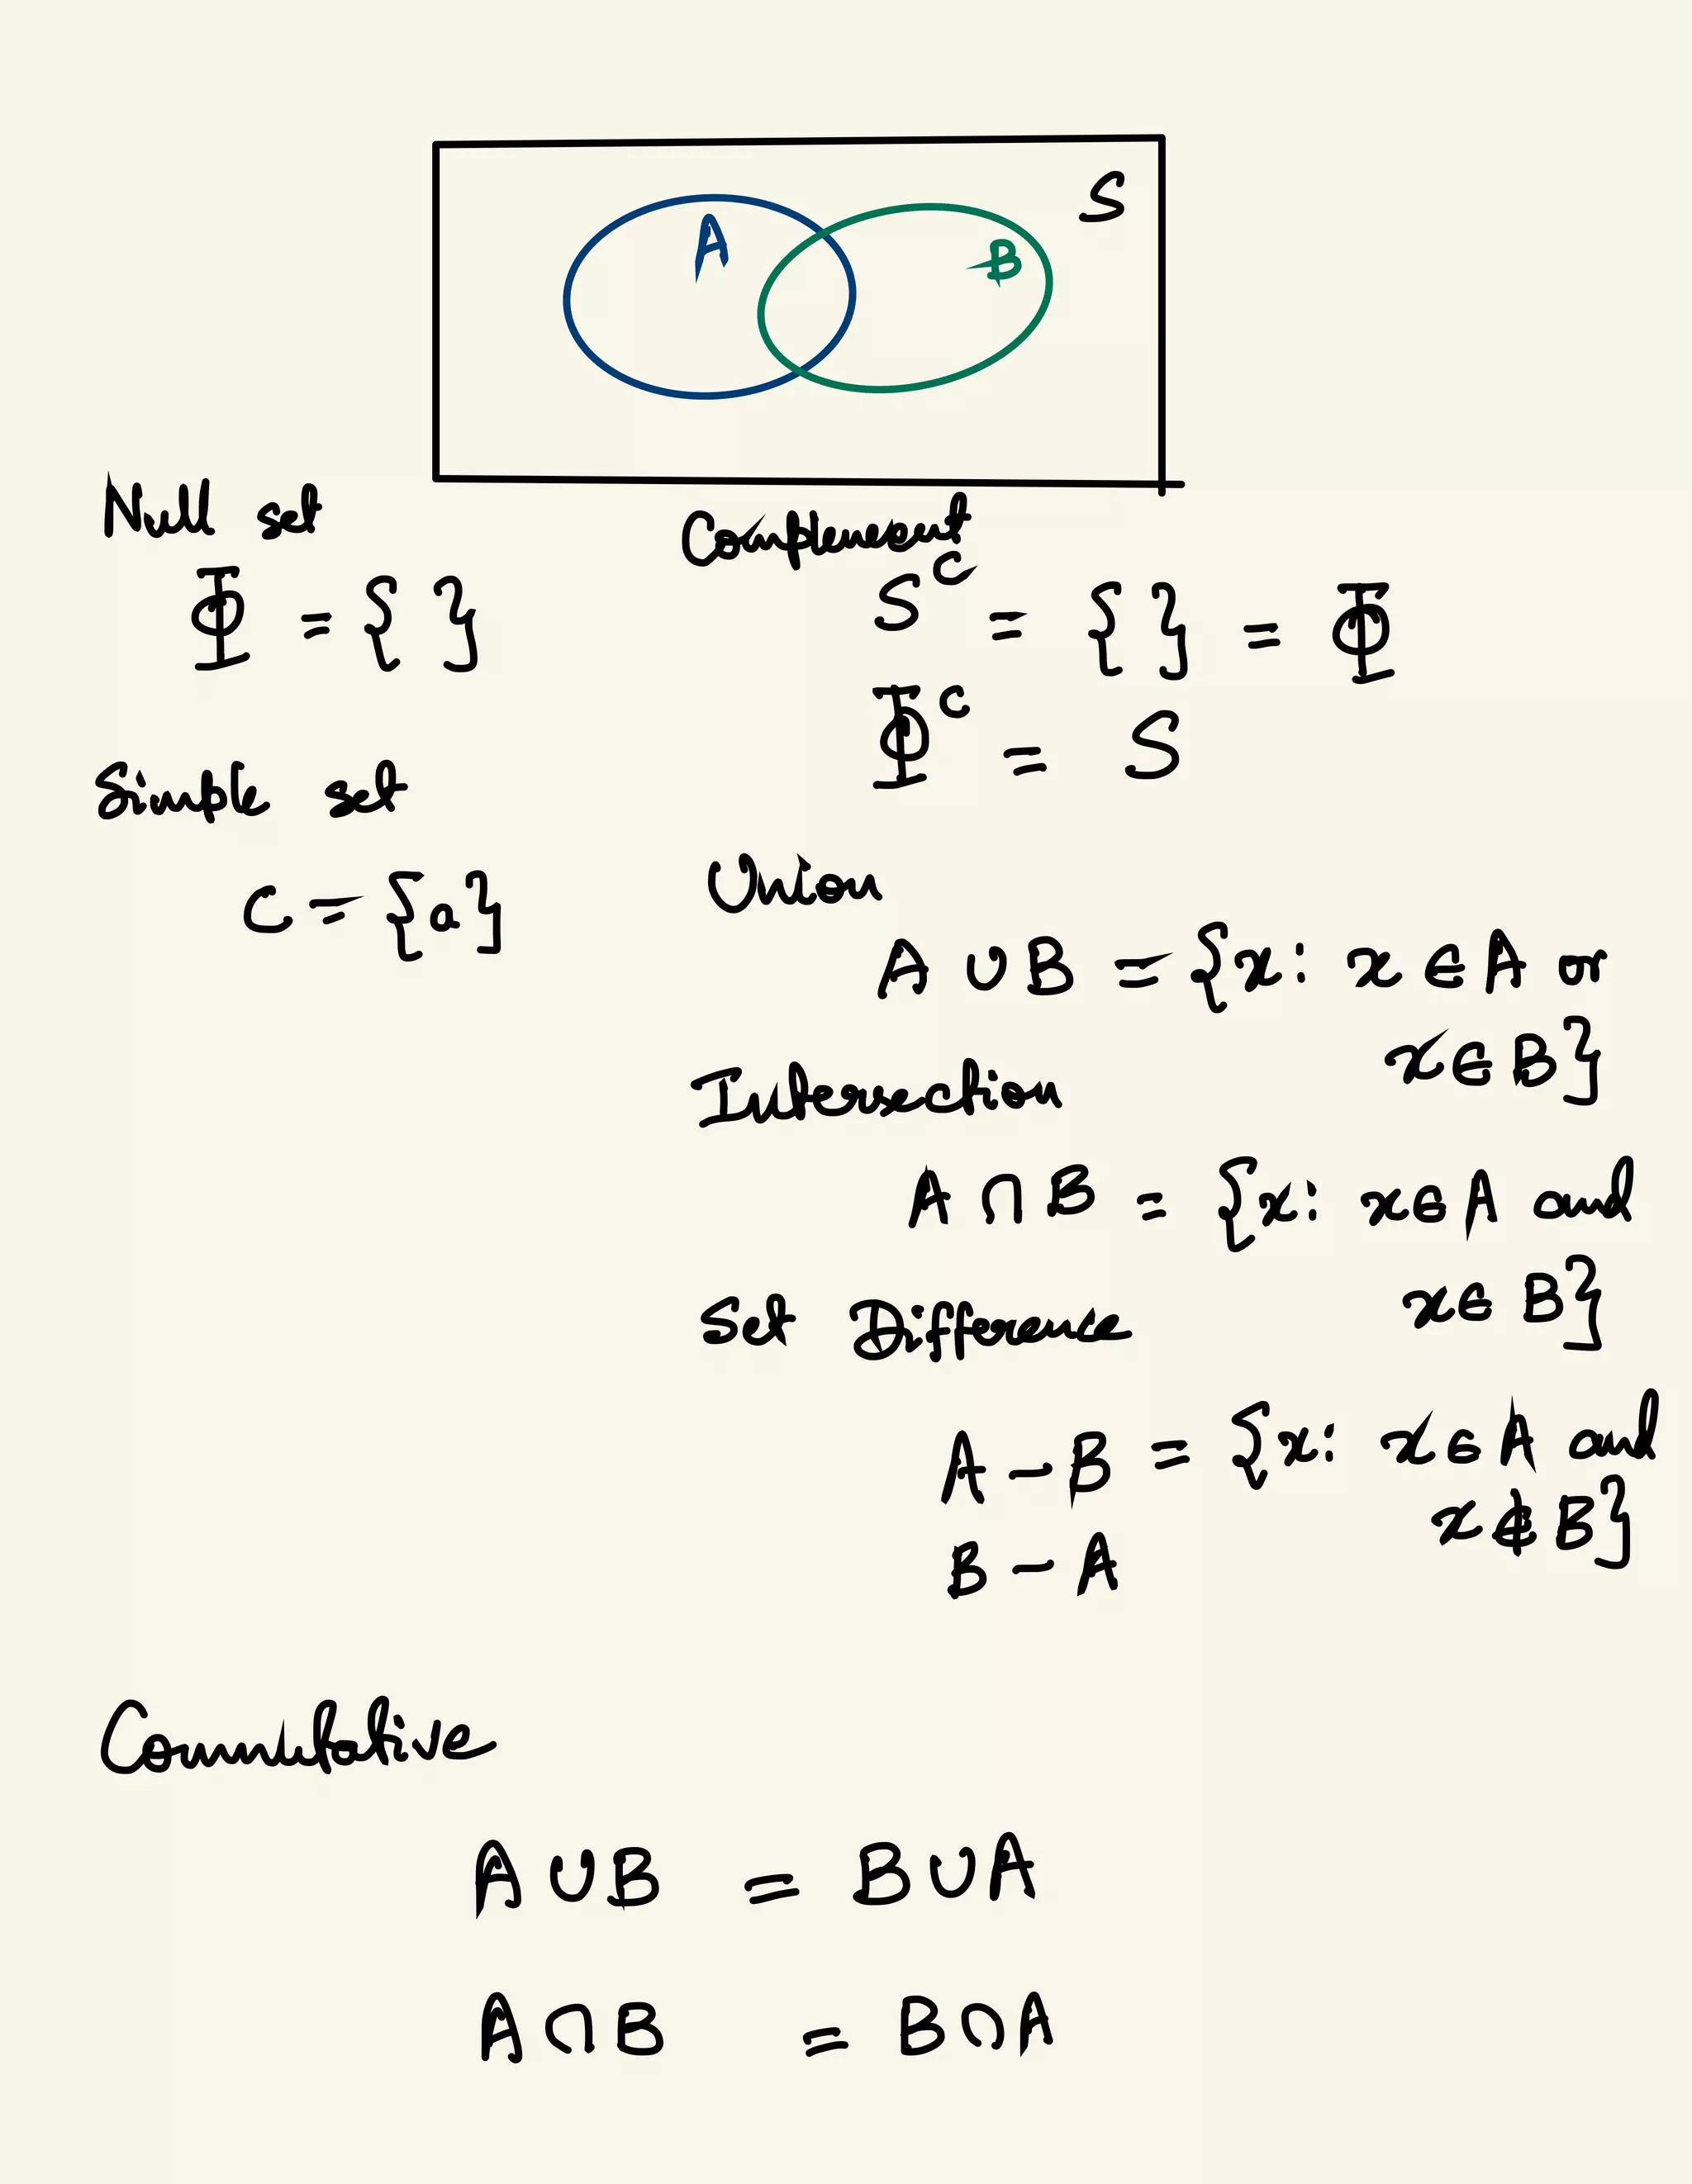 A
B
S
Null set
Φ = { }
Simple set
C = {a}
Complement
Sᶜ = { } = Φ
Φᶜ = S
Union
A ∪ B = {x: x ∈ A or
x ∈ B}
Intersection
A ∩ B = {x: x ∈ A and
x ∈ B}
Set Difference
A - B = {x: x ∈ A and
x ∉ B}
B - A
Commutative
A ∪ B = B ∪ A
A ∩ B = B ∩ A